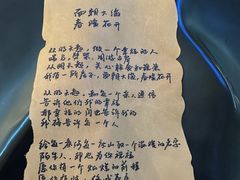 面朝大海
春暖花开
从明天起，做一个幸福的人
喂马，劈柴，周游世界
从明天起，关心粮食和蔬菜
我有一所房子，面朝大海，春暖花开
从明天起，和每一个亲人通信
告诉他们我的幸福
那幸福的闪电告诉我的
我将告诉每一个人
给每一条河每一座山取一个温暖的名字
陌生人，我也为你祝福
愿你有一个灿烂的前程